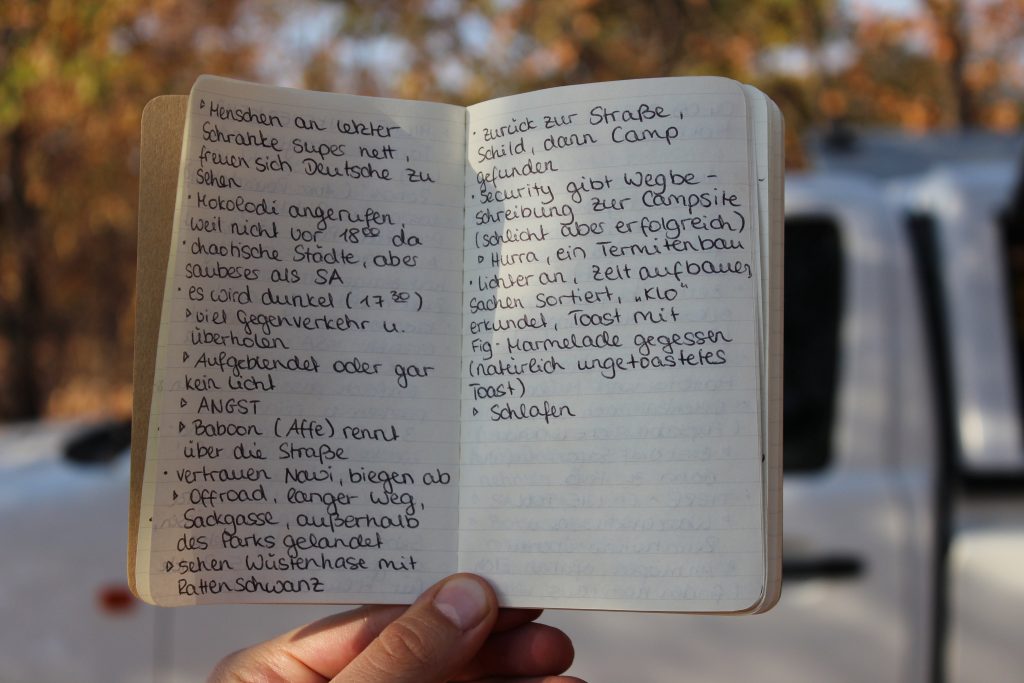 ▹ Menschen an letzter
Schranke super nett,
freuen sich Deutsche zu
sehen
· Mokolodi angerufen,
weil nicht vor 18⁰⁰ da
· chaotische Städte, aber
sauberer als SA
· es wird dunkel (17³⁰)
▹ viel Gegenverkehr u.
überholen
▹ Aufgeblendet oder gar
kein Licht
▹ ANGST
· ▹ Baboon (Affe) rennt
über die Straße
· vertrauen Navi, biegen ab
▹ Offroad, langer Weg,
Sackgasse, außerhalb
des Parks gelandet
▹ sehen Wüstenhase mit
Rattenschwanz
· zurück zur Straße,
Schild, dann Camp
gefunden
· Security gibt Wegbe-
schreibung zur Campsite
(schlicht aber erfolgreich)
▹ Hurra, ein Termitenbau
· Lichter an, Zelt aufbauen,
sachen sortiert, „Klo"
erkundet, Toast mit
Fig-Marmelade gegessen
(natürlich ungetoastetes
Toast)
▹ Schlafen